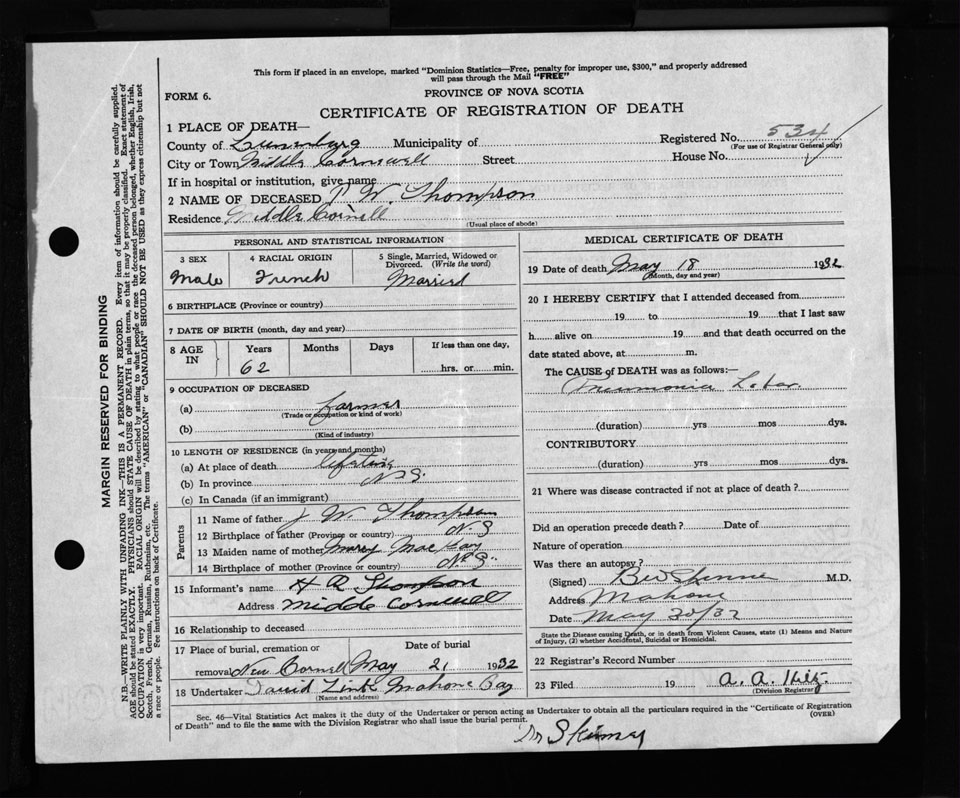 This form if placed in an envelope, marked "Dominion Statistics—Free, penalty for improper use, $300," and properly addressed
will pass through the Mail "FREE"
FORM 6.
PROVINCE OF NOVA SCOTIA
CERTIFICATE OF REGISTRATION OF DEATH
1 PLACE OF DEATH—
County of Lunenburg Municipality of Registered No. 534
(For use of Registrar General only)
City or Town Middle Cornwell Street House No.
If in hospital or institution, give name
2 NAME OF DECEASED W. Thompson
Residence Middle Cornell
(Usual place of abode)
PERSONAL AND STATISTICAL INFORMATION
3 SEX 4 RACIAL ORIGIN 5 Single, Married, Widowed or
Divorced. (Write the word)
Male French Married
6 BIRTHPLACE (Province or country)
7 DATE OF BIRTH (month, day and year)
8 AGE IN Years Months Days If less than one day,
62 hrs. or min.
9 OCCUPATION OF DECEASED
(a) farmer
(Trade or occupation or kind of work)
(b)
(Kind of industry)
10 LENGTH OF RESIDENCE (in years and months)
(a) At place of death lifetime
(b) In province N S.
(c) In Canada (if an immigrant)
Parents
11 Name of father J W Thompson
12 Birthplace of father (Province or country) N. S
13 Maiden name of mother Mary MacKay
14 Birthplace of mother (Province or country) N. S.
15 Informant's name H A Thompson
Address Middle Cornwell
16 Relationship to deceased
17 Place of burial, cremation or Date of burial
removal New Cornell May 21 1932
18 Undertaker David Zink Mahone Bay
(Name and address)
MEDICAL CERTIFICATE OF DEATH
19 Date of death May 18 1932
(Month, day and year)
20 I HEREBY CERTIFY that I attended deceased from
19 to 19 that I last saw
h alive on 19 and that death occurred on the
date stated above, at m.
The CAUSE of DEATH was as follows:—
Pneumonia Lobar
(duration) yrs mos dys.
CONTRIBUTORY
(duration) yrs mos dys.
21 Where was disease contracted if not at place of death?
Did an operation precede death? Date of
Nature of operation
Was there an autopsy?
(Signed) Skinner M.D.
Address Mahone
Date May 20/32
State the Disease causing Death, or in death from Violent Causes, state (1) Means and Nature
of Injury, (2) whether Accidental, Suicidal or Homicidal.
22 Registrar's Record Number
23 Filed 19 A. A.
(Division Registrar)
Sec. 46—Vital Statistics Act makes it the duty of the Undertaker or person acting as Undertaker to obtain all the particulars required in the "Certificate of Registration
of Death" and to file the same with the Division Registrar who shall issue the burial permit.
(OVER)
Dr Skinner
MARGIN RESERVED FOR BINDING
N.B.—WRITE PLAINLY WITH UNFADING INK—THIS IS A PERMANENT RECORD. Every item of information should be carefully supplied.
AGE should be stated EXACTLY. PHYSICIANS should STATE CAUSE OF DEATH in plain terms, so that it may be properly classified. Exact statement of
OCCUPATION is very important. RACIAL ORIGIN will be described by stating to what people or race the deceased person belonged, whether English, Irish,
Scotch, French, German, Russian, Ruthenian, etc. The terms "AMERICAN" or "CANADIAN" SHOULD NOT BE USED as they express citizenship but not
a race or people. See instructions on back of Certificate.